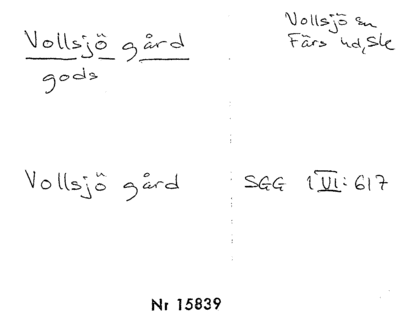 Vollsjö gård
gods
Vollsjö sn
Färs hd, Sk
Vollsjö gård
SGG 1 VI: 617
Nr 15839